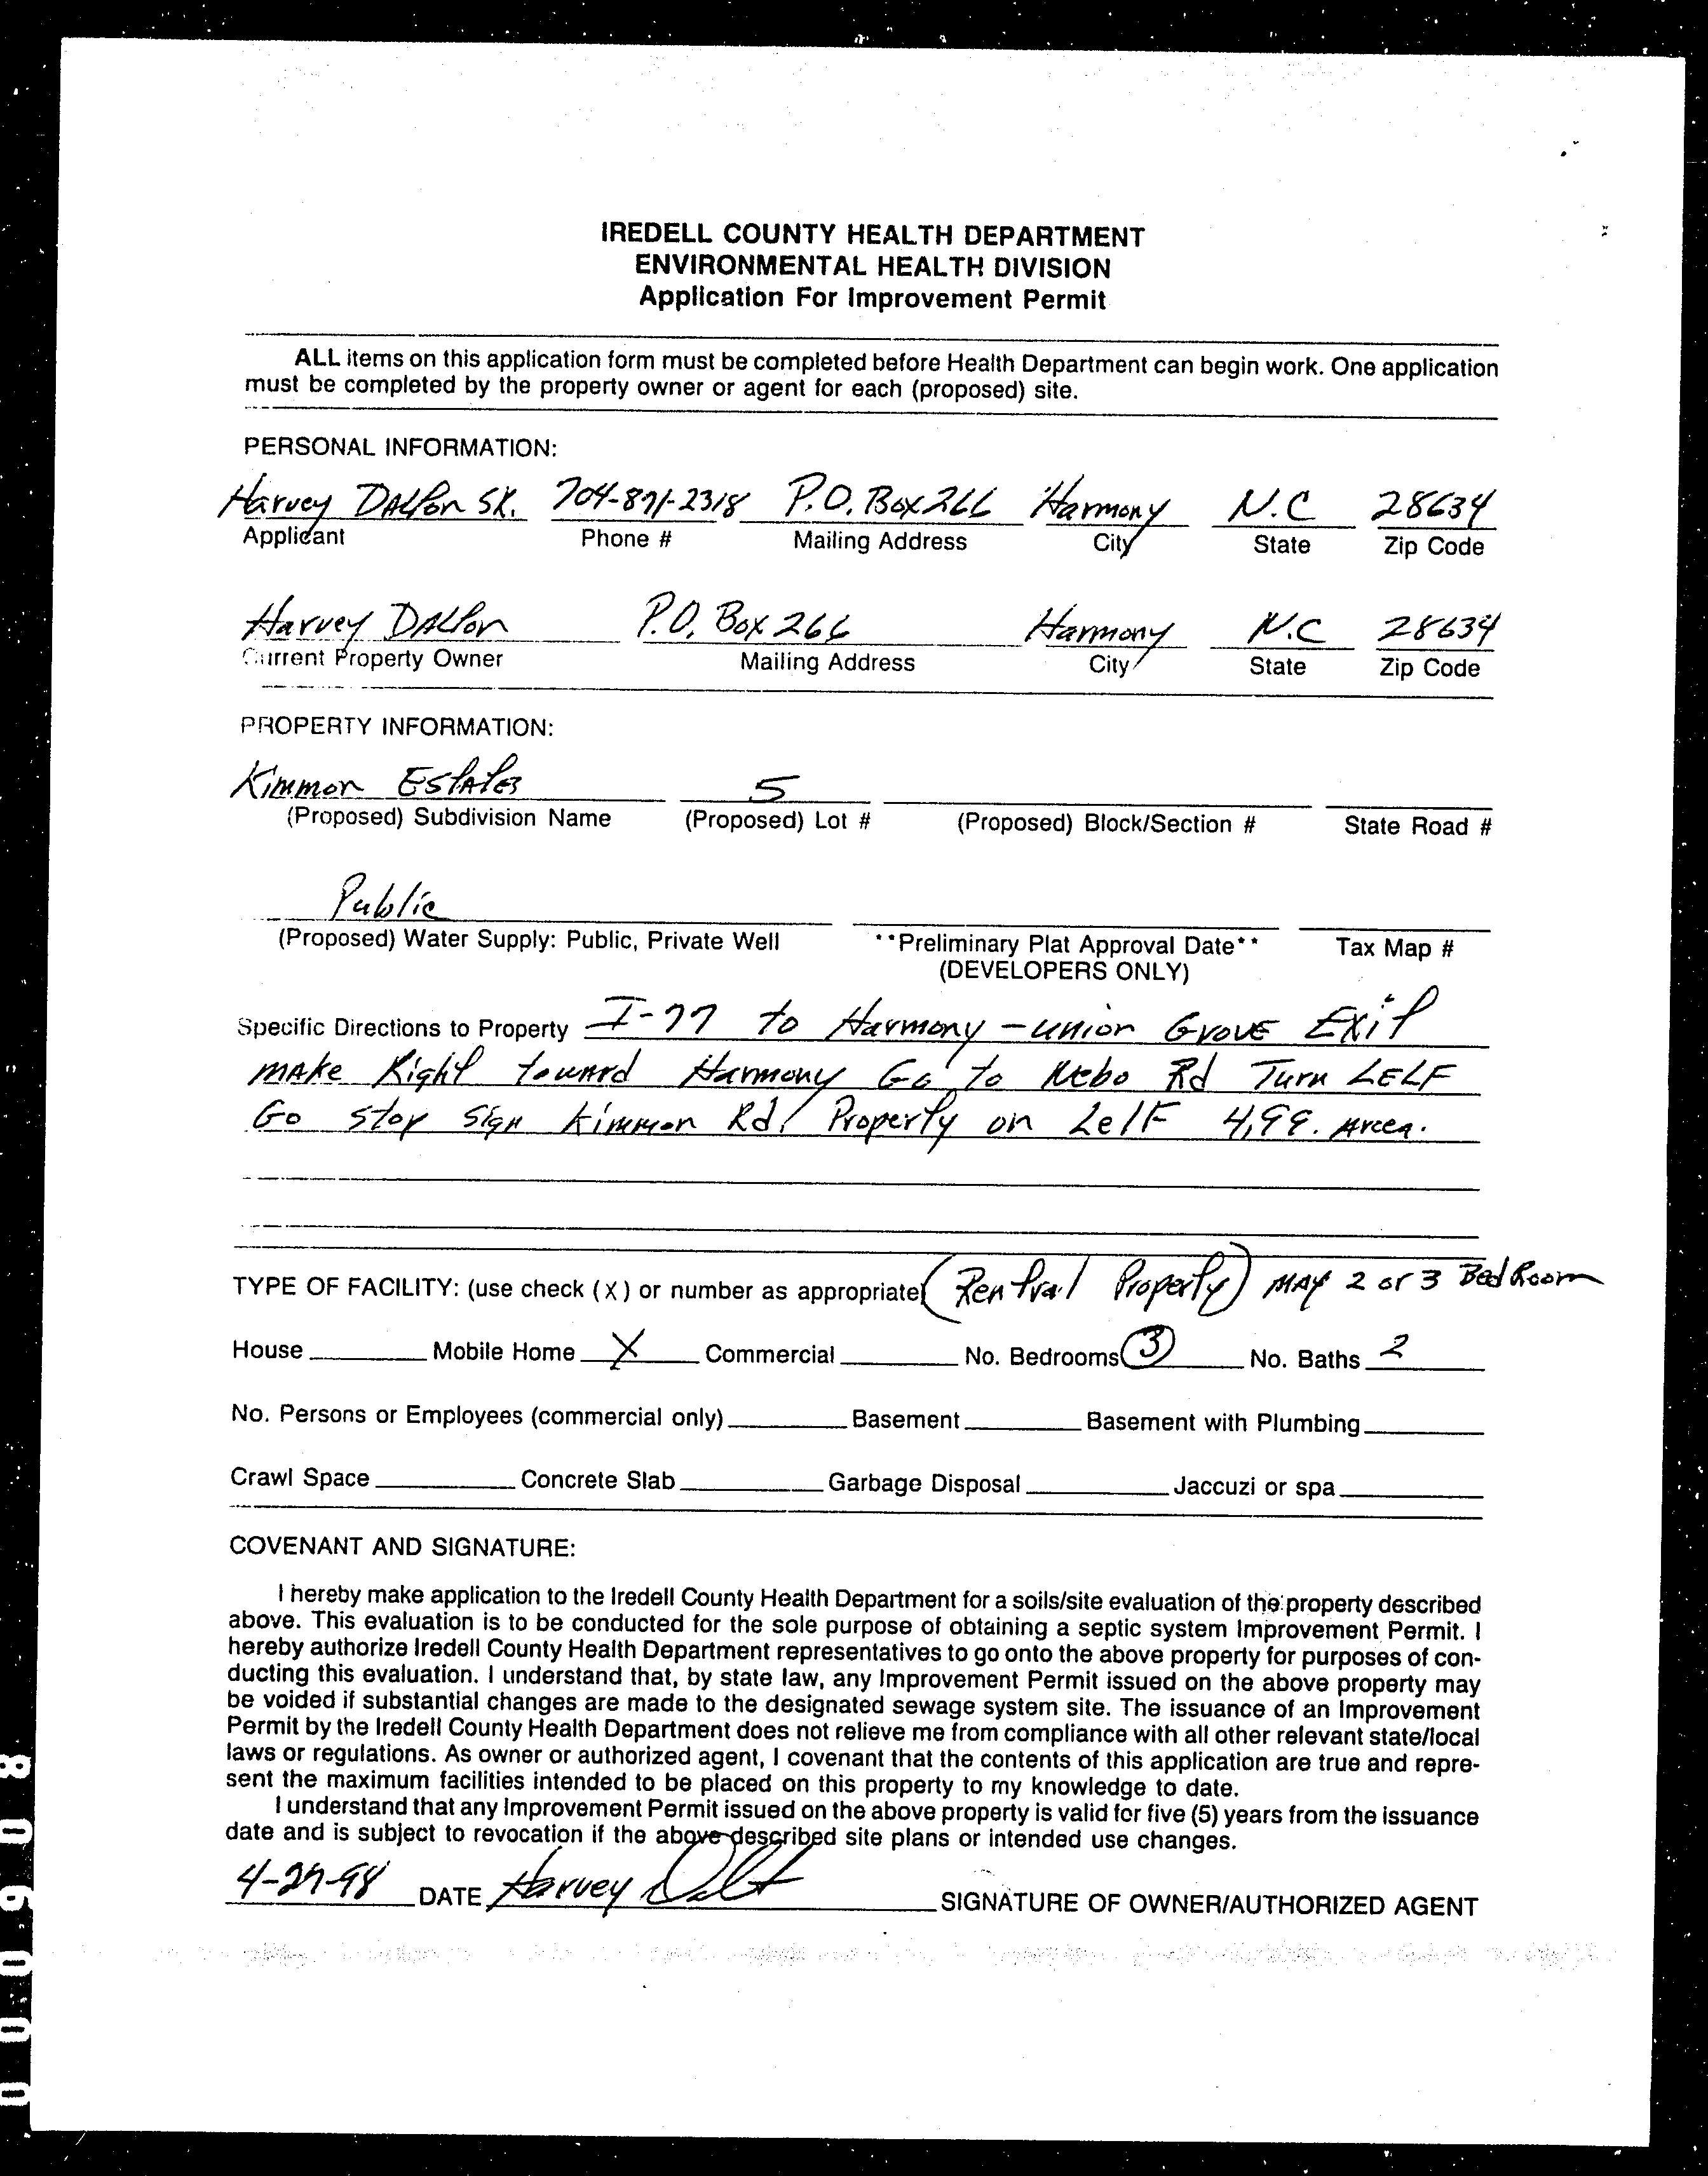 IREDELL COUNTY HEALTH DEPARTMENT
ENVIRONMENTAL HEALTH DIVISION
Application For Improvement Permit
ALL items on this application form must be completed before Health Department can begin work. One application
must be completed by the property owner or agent for each (proposed) site.
PERSONAL INFORMATION:
Harvey DALton SR. 704-871-2318 P.O. Box 266 Harmony N.C 28634
Applicant Phone # Mailing Address City State Zip Code
Harvey DALton P.O. Box 266 Harmony N.C 28634
Current Property Owner Mailing Address City State Zip Code
PROPERTY INFORMATION:
Kimmon EstAtes 5
(Proposed) Subdivision Name (Proposed) Lot # (Proposed) Block/Section # State Road #
Public
(Proposed) Water Supply: Public, Private Well **Preliminary Plat Approval Date** Tax Map #
(DEVELOPERS ONLY)
Specific Directions to Property I-77 to Harmony - union GrovE Exit
mAke Right toward Harmony Go to Nebo Rd Turn LELF
Go stop sign kimmon Rd. Property on LelF 4.99.
TYPE OF FACILITY: (use check (X) or number as appropriate) (Rentral Property) MAY 2 or 3 Bed Room
House Mobile Home X Commercial No. Bedrooms 3 No. Baths 2
No. Persons or Employees (commercial only) Basement Basement with Plumbing
Crawl Space Concrete Slab Garbage Disposal Jaccuzi or spa
COVENANT AND SIGNATURE:
I hereby make application to the Iredell County Health Department for a soils/site evaluation of the property described
above. This evaluation is to be conducted for the sole purpose of obtaining a septic system Improvement Permit. I
hereby authorize Iredell County Health Department representatives to go onto the above property for purposes of con-
ducting this evaluation. I understand that, by state law, any Improvement Permit issued on the above property may
be voided if substantial changes are made to the designated sewage system site. The issuance of an Improvement
Permit by the Iredell County Health Department does not relieve me from compliance with all other relevant state/local
laws or regulations. As owner or authorized agent, I covenant that the contents of this application are true and repre-
sent the maximum facilities intended to be placed on this property to my knowledge to date.
I understand that any Improvement Permit issued on the above property is valid for five (5) years from the issuance
date and is subject to revocation if the above described site plans or intended use changes.
4-27-98 DATE Harvey Dalt SIGNATURE OF OWNER/AUTHORIZED AGENT
000908